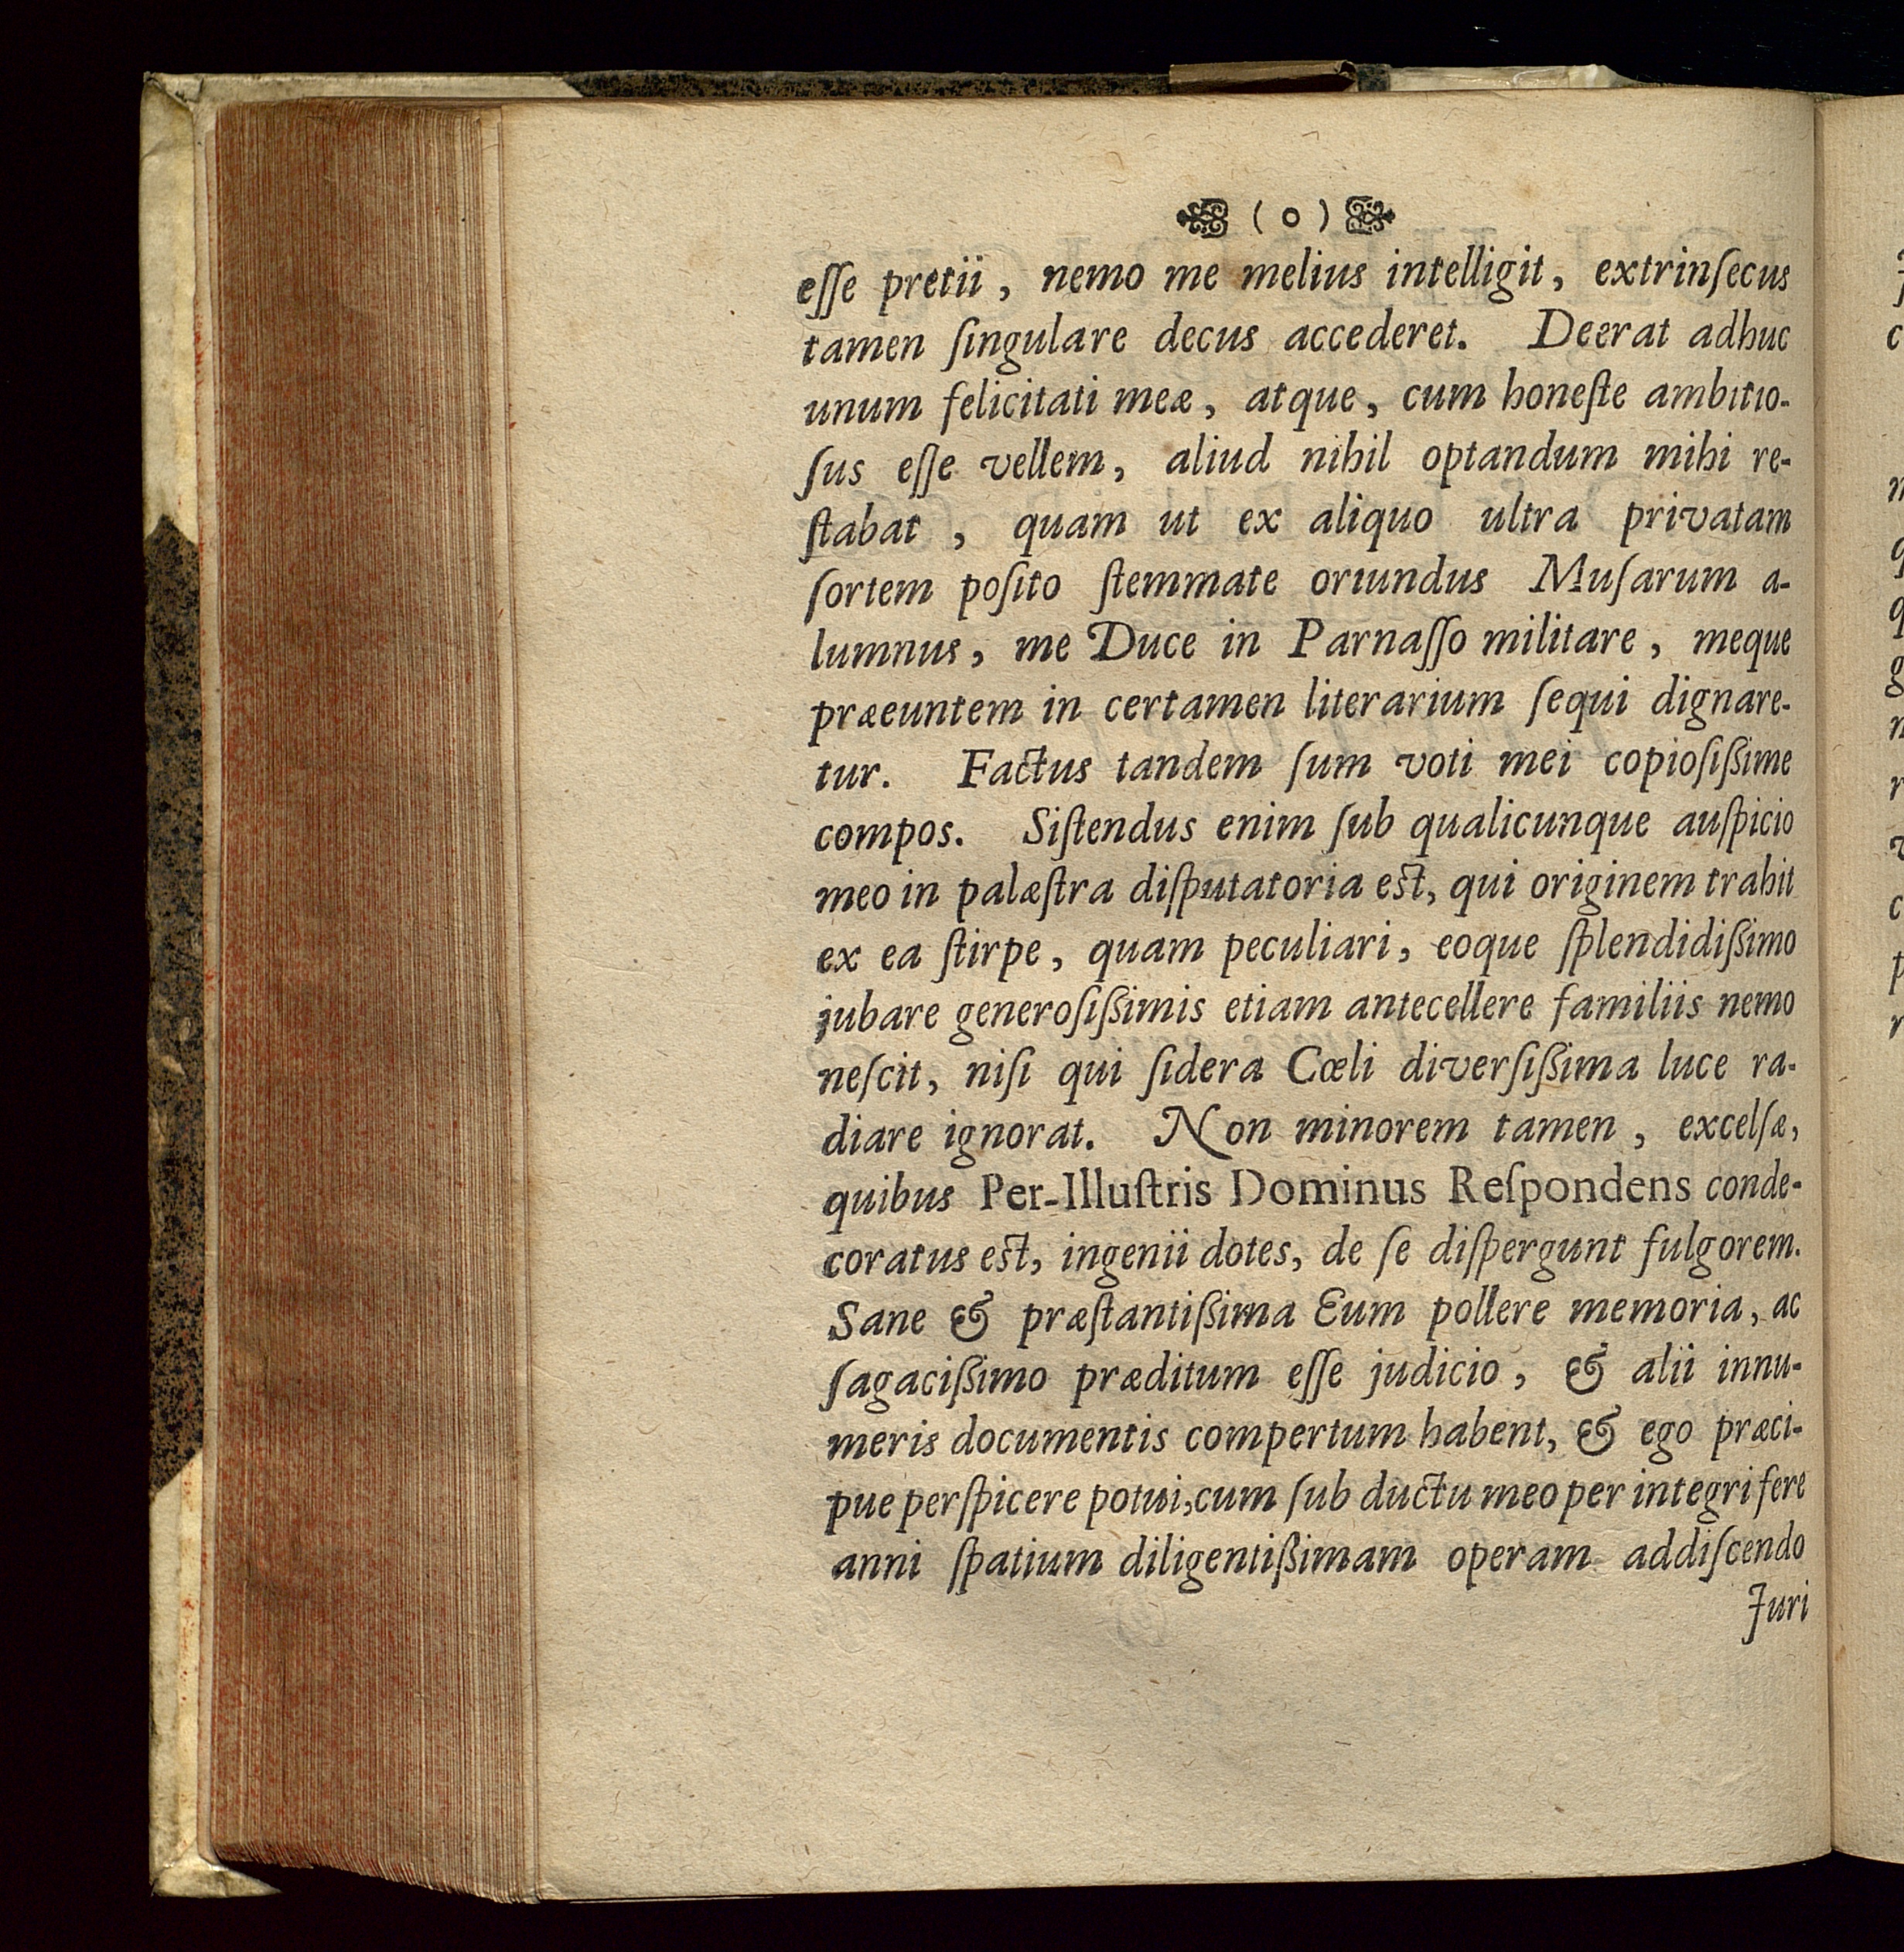 ( o )
eſſe pretii, nemo me melius intelligit, extrinſecus
tamen ſingulare decus accederet. Deerat adhuc
unum felicitati meæ, atque, cum honeſte ambitio-
ſus eſſe vellem, aliud nihil optandum mihi re-
ſtabat, quam ut ex aliquo ultra privatam
ſortem poſito ſtemmate oriundus Muſarum a-
lumnus, me Duce in Parnaſſo militare, meque
præeuntem in certamen literarium ſequi dignare-
tur. Factus tandem ſum voti mei copioſiſſime
compos. Siſtendus enim ſub qualicunque auſpicio
meo in palæſtra diſputatoria eſt, qui originem trahit
ex ea ſtirpe, quam peculiari, eoque ſplendidiſſimo
jubare generoſiſſimis etiam antecellere familiis nemo
neſcit, niſi qui ſidera Cœli diverſiſſima luce ra-
diare ignorat. Non minorem tamen, excelſæ,
quibus Per-Illuſtris Dominus Reſpondens conde-
coratus eſt, ingenii dotes, de ſe diſpergunt fulgorem.
Sane & præſtantiſſima Eum pollere memoria, ac
ſagaciſſimo præditum eſſe judicio, & alii innu-
meris documentis compertum habent, & ego præci-
pue perſpicere potui, cum ſub ductu meo per integri fere
anni ſpatium diligentiſſimam operam addiſcendo
Juri